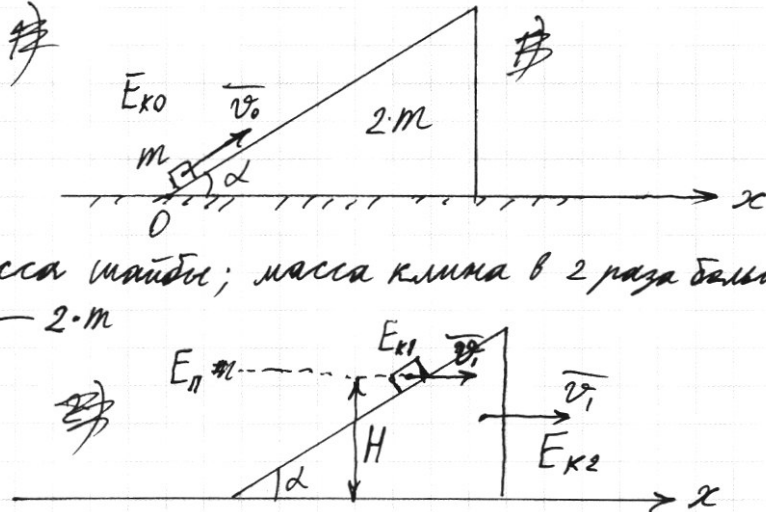 E_K0 v₀
m α 2·m
0 x
сса шайбы; масса клина в 2 раза боль
— 2·m
E_K1 v₁
E_п v₁
H E_K2
α x